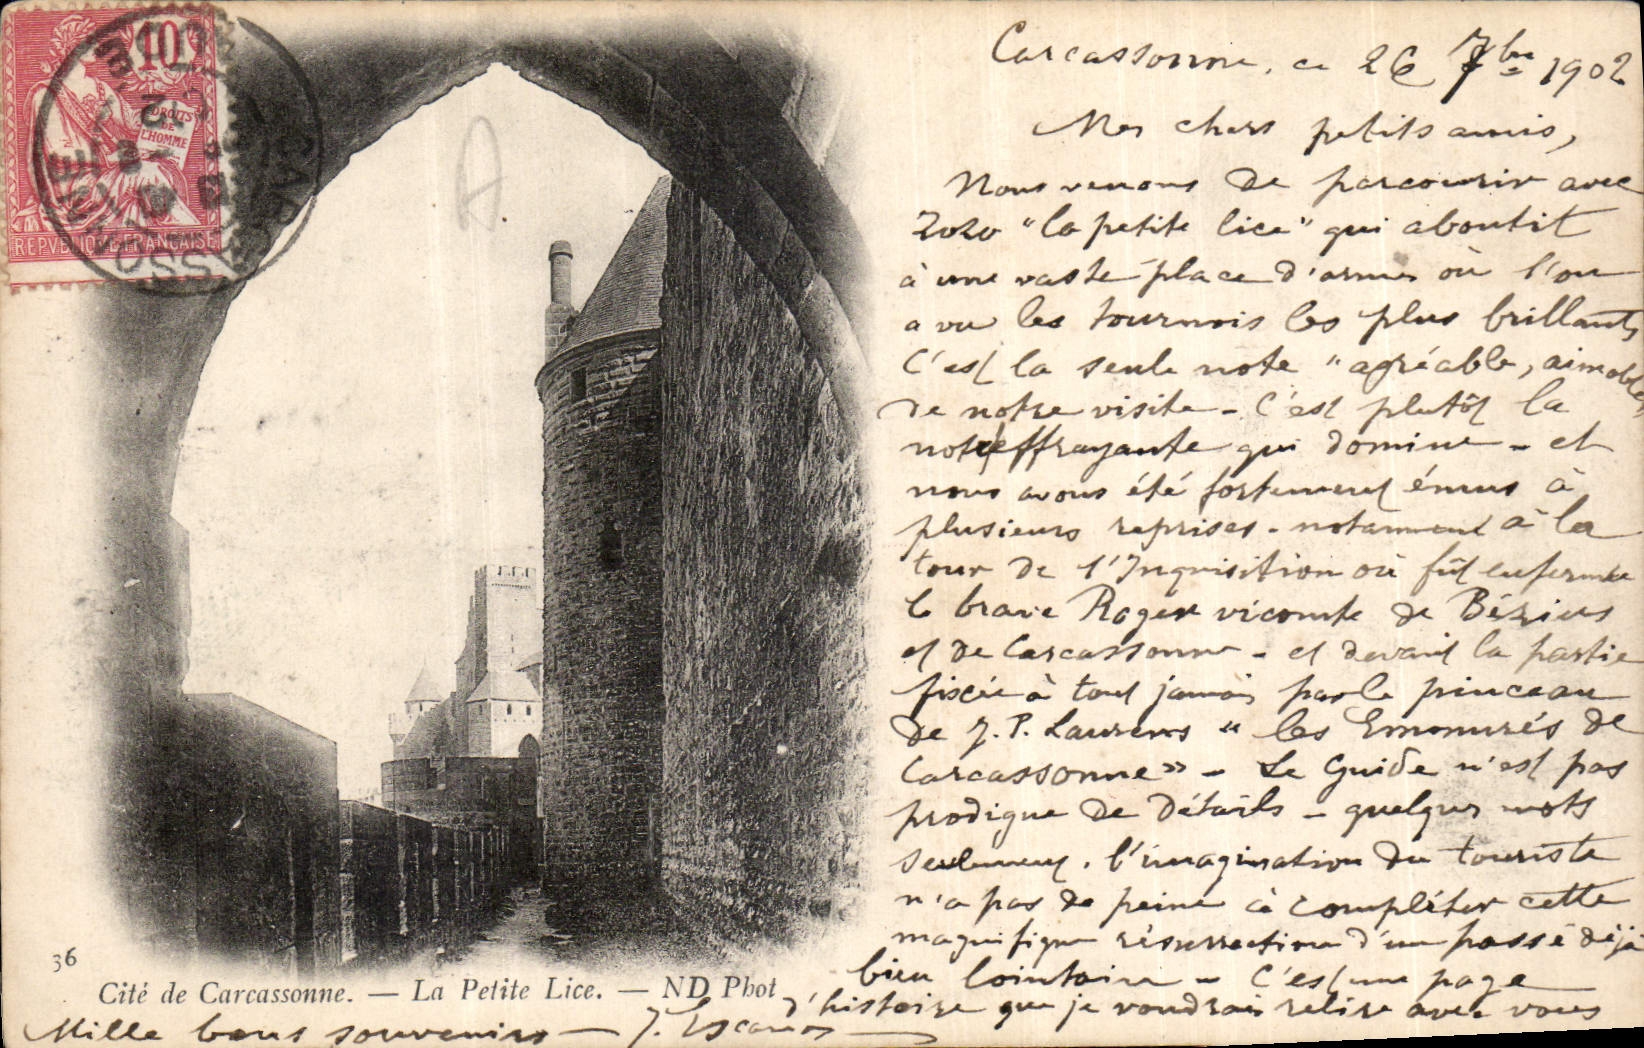 10
DROITS
DE
L'HOMME
REPVBLIQUE FRANÇAISE
CARCASSONNE
Carcassonne, ce 26 7bre 1902
Mes chers petits amis,
Nous venons de parcourir avec
Zozo "la petite lice" qui aboutit
à une vaste place d'armes où l'on
a vu les tournois les plus brillants
C'est la seule note "agréable, aimable
de notre visite - C'est plutôt la
note effrayante qui domine - et
nous avons été fortement émus à
plusieurs reprises - notamment à la
tour de l'Inquisition où fût enfermé
le brave Roger vicomte de Béziers
et de Carcassonne - et devant la partie
fixée à tout jamais par le pinceau
de J. P. Laurens "les Emmurés de
Carcassonne" - Le Guide n'est pas
prodigue de détails - quelques mots
seulement. l'imagination du touriste
n'a pas de peine à compléter cette
magnifique résurrection d'un passé déjà
bien lointain - C'est une page
d'histoire que je voudrais relire avec vous
Mille bons souvenirs - J. Escanos
36
Cité de Carcassonne. — La Petite Lice. — ND Phot